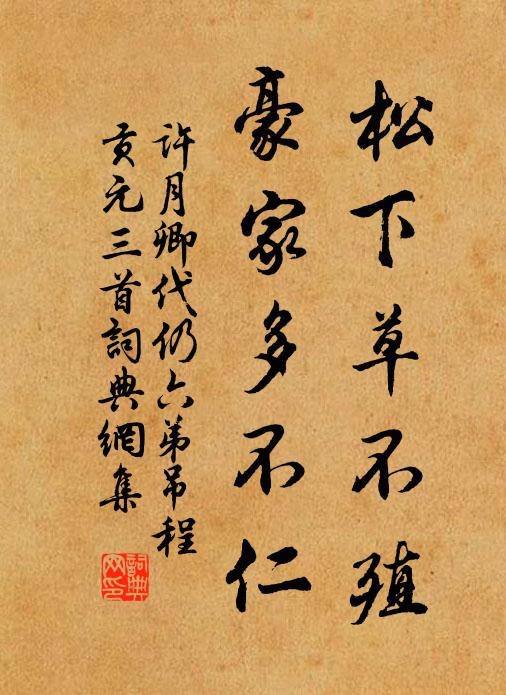 松下草不殖
豪家多不仁
許月卿代仍六弟吊程
貢元三首詞典網集
詞典网印